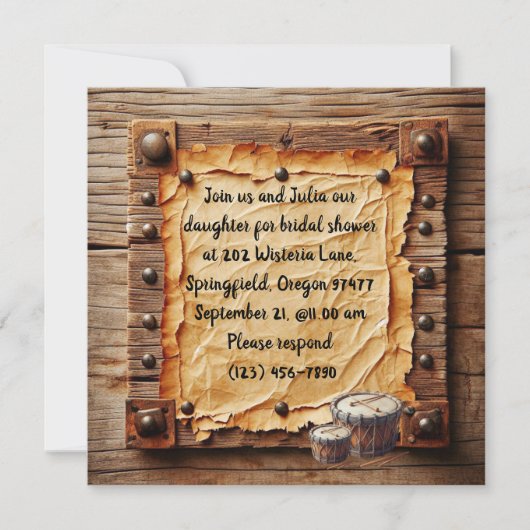 Join us and Julia our
daughter for bridal shower
at 202 Wisteria Lane,
Springfield, Oregon 97477
September 21, @11.00 am
Please respond
(123) 456-7890